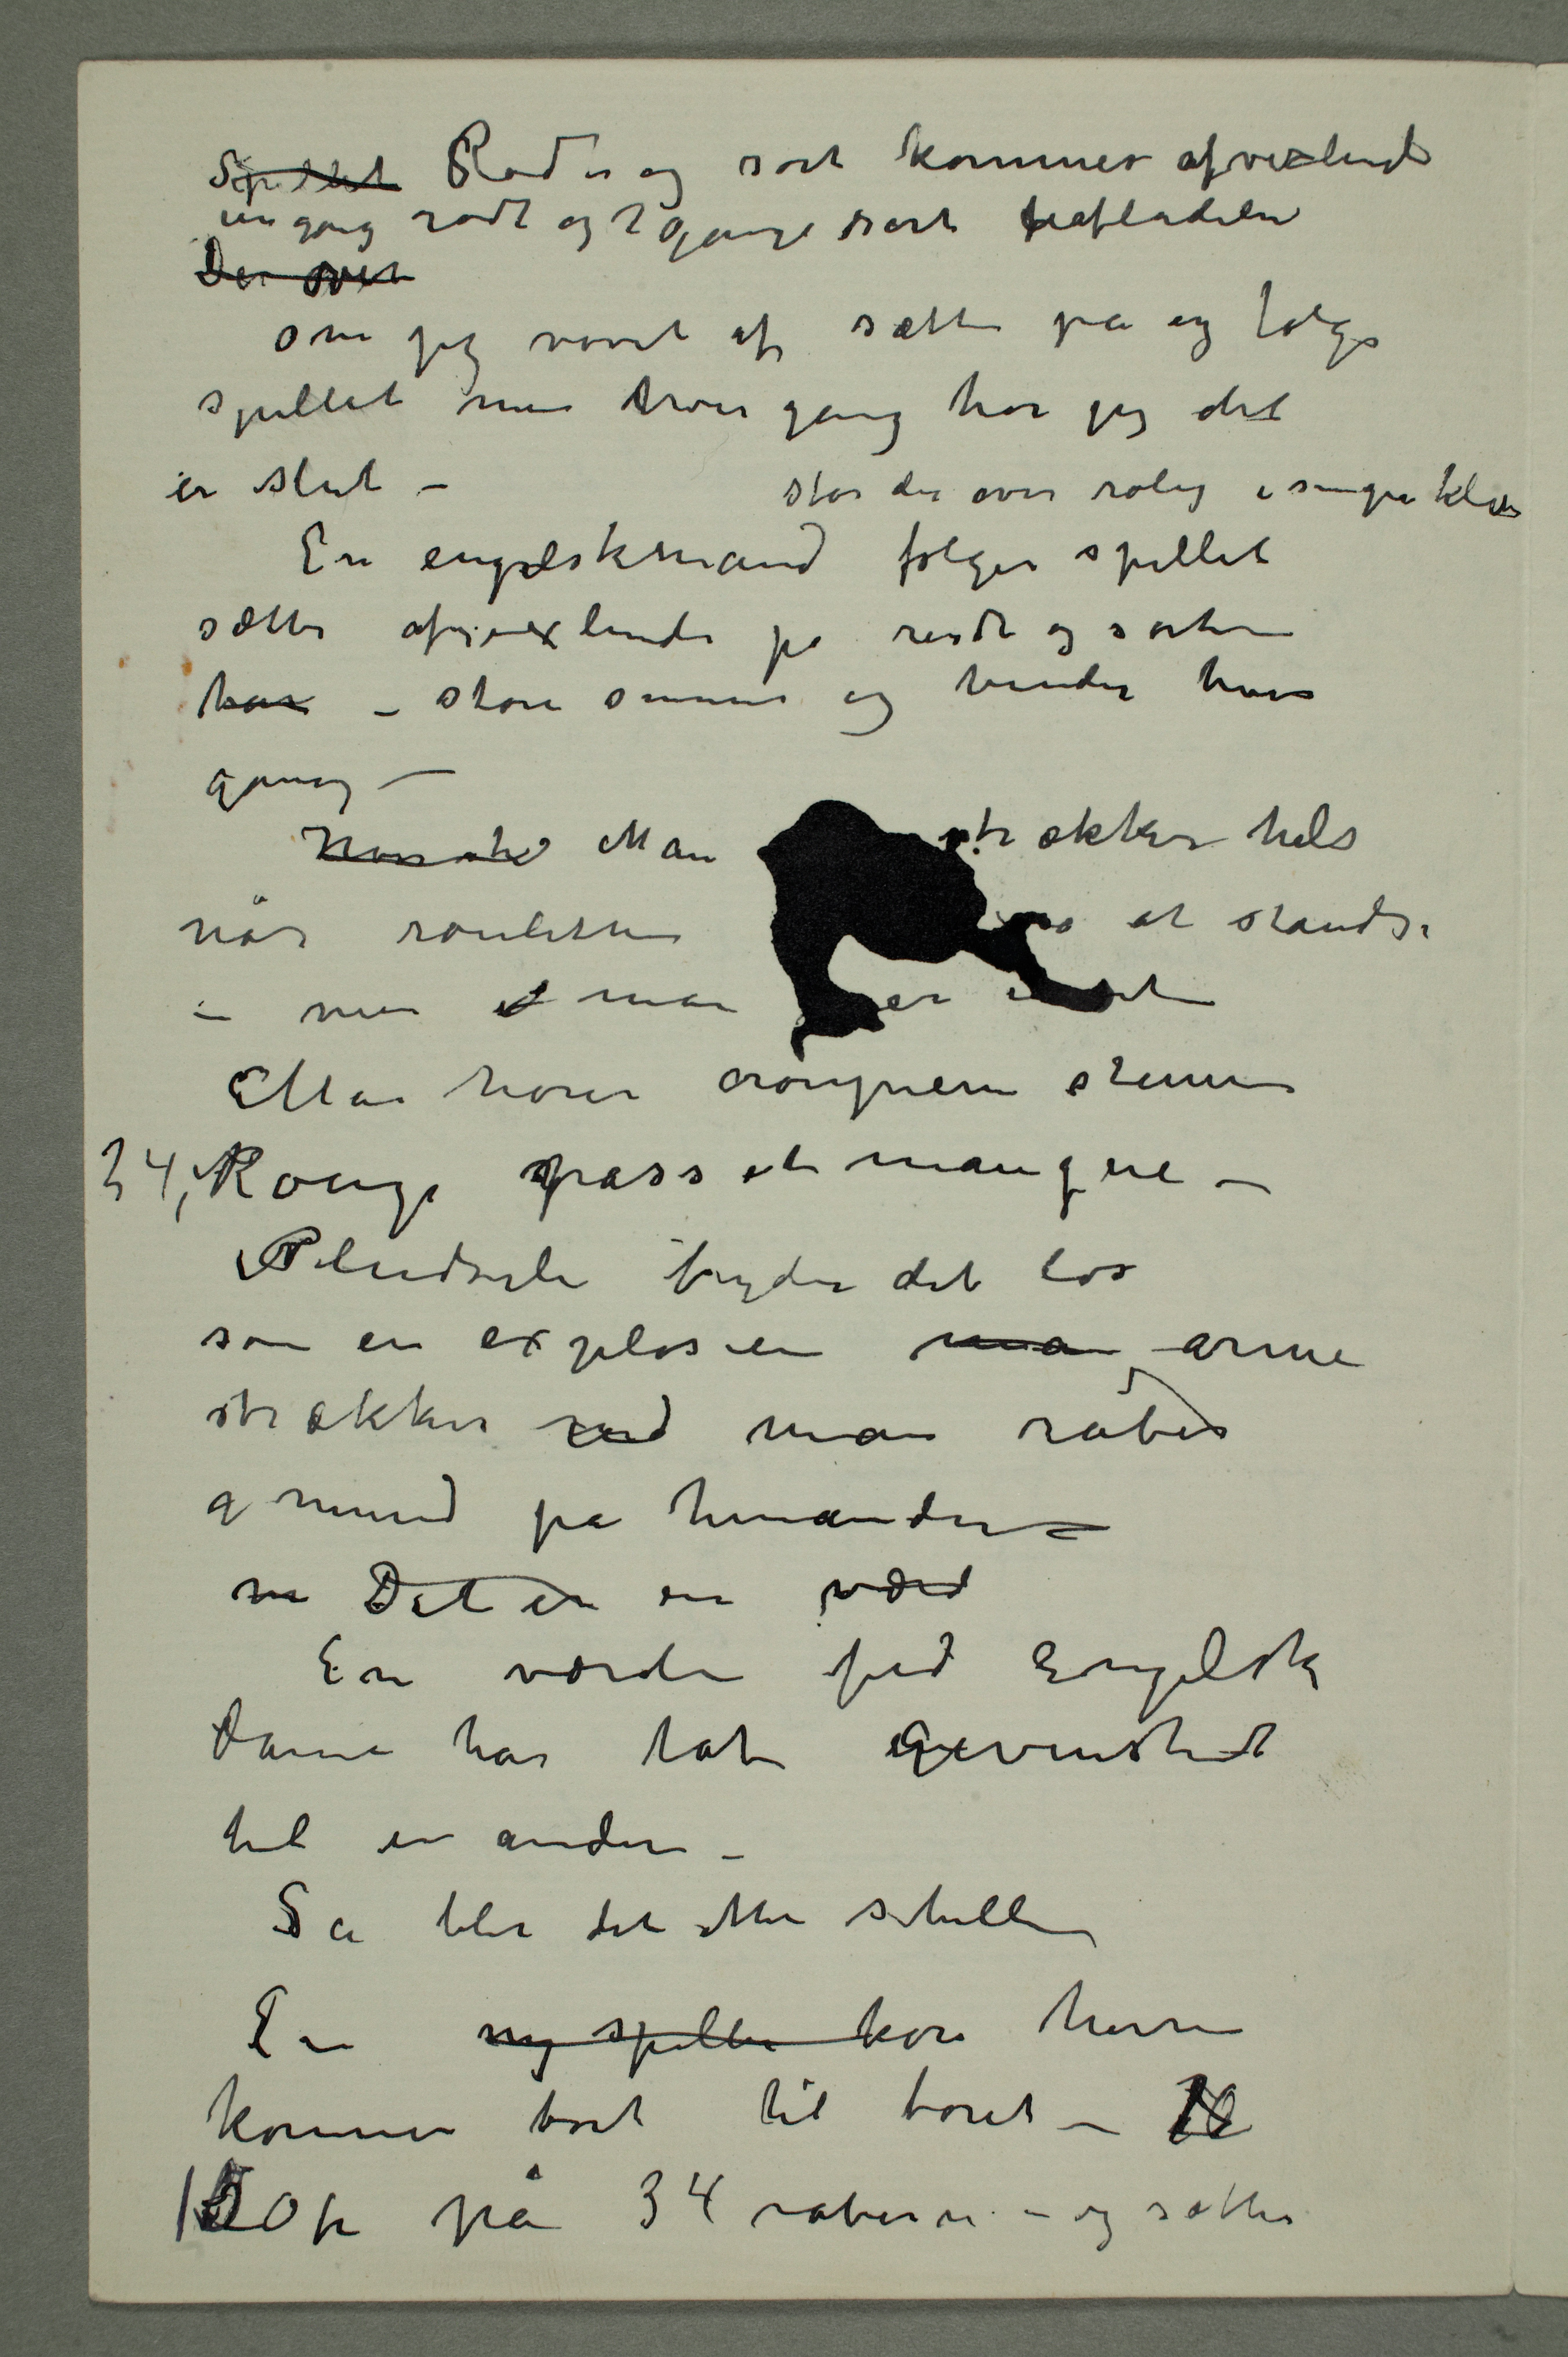 Spillet Rødt og sort kommer afvexlende
en gang rødt og 2 gange sort uafladelig
Der var
om jeg vovet at sætte på og følge
spillet men hver gang tror jeg det
er slut –
står der over rolig i
En engelskmand følger spillet
sætter afvexlende på rødt og sort
har – store summer og vinder hver
gang –
Man strækker hals
når rouletten at standse
– men man er
Man hører croupierens stemme
34, Rouge pass et manque –
Pludselig bryder det løs
som en explosion man arme
strækker ud man råber
i munden på hinanden –
m Det er en værd
En værdig fed Engelsk
dame har tat gevinsten
til en anden –
Så blir det atter stille
En ny spiller kom herre
kommer bort til boret –
100 fr på 34 råber – og sætter